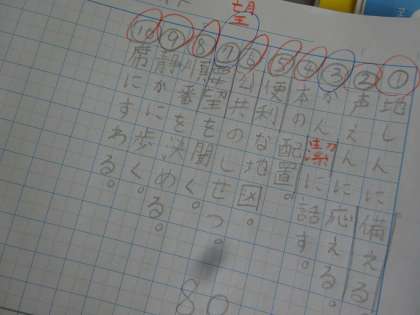 ①地しんに備える
②声えんに応える。
③かん潔に話す。
④本の配置。
⑤便利な地図。
⑥公共のしせつ。
⑦要望を聞く。
⑧順番を決める。
⑨静かに歩く。
⑩席にすわる。
80